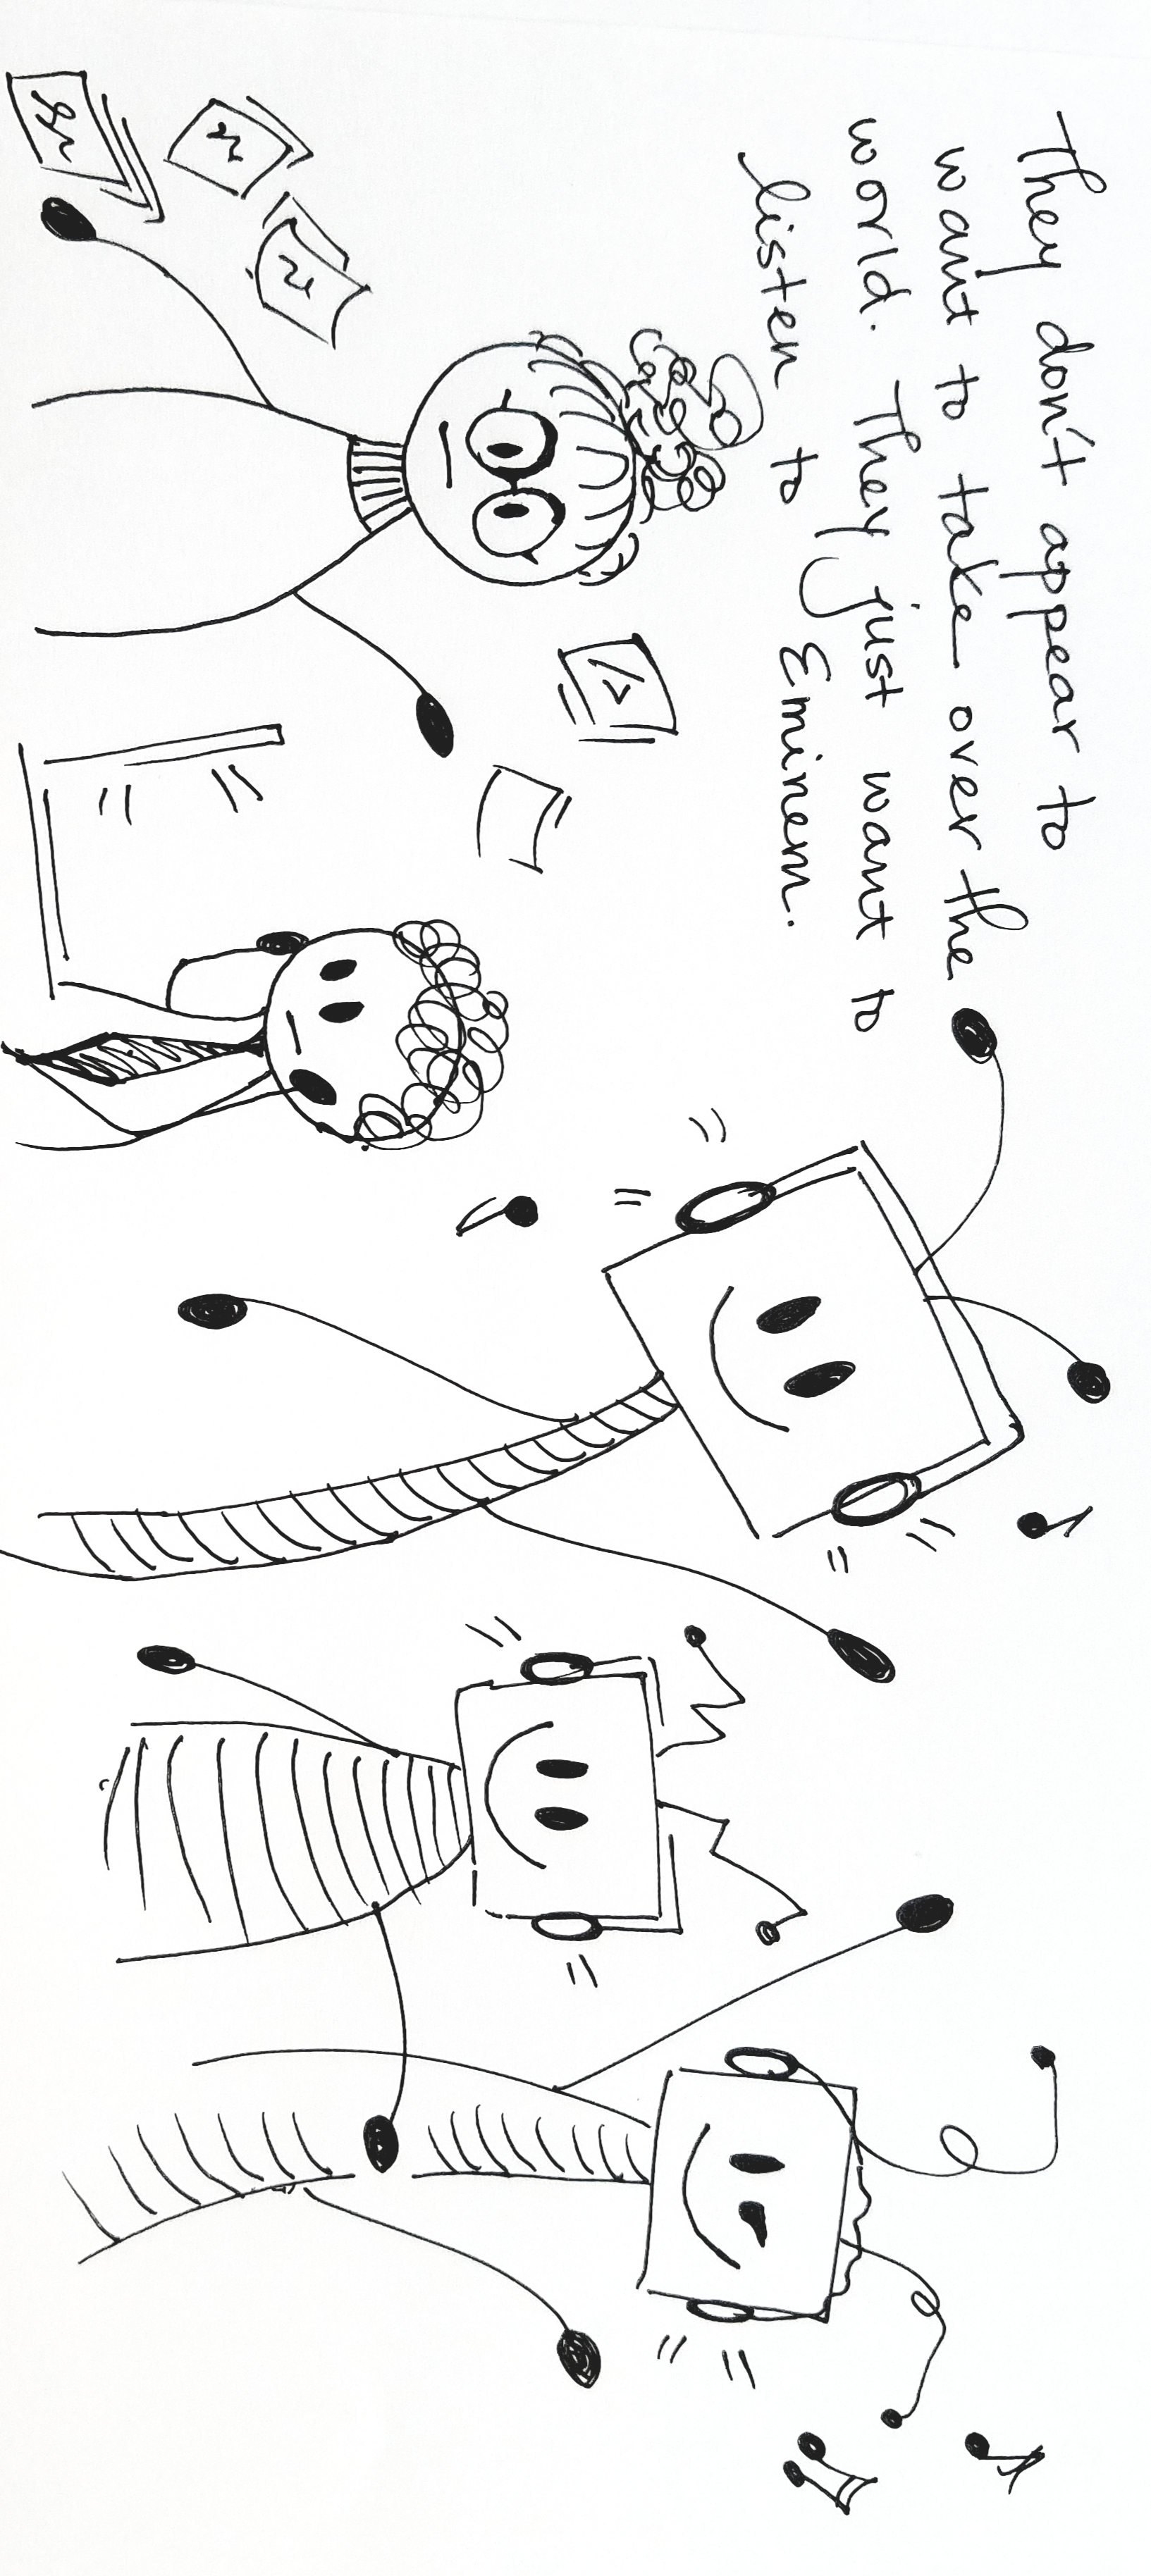 They don't appear to
want to take over the
world. They just want to
listen to Eminem.
/>